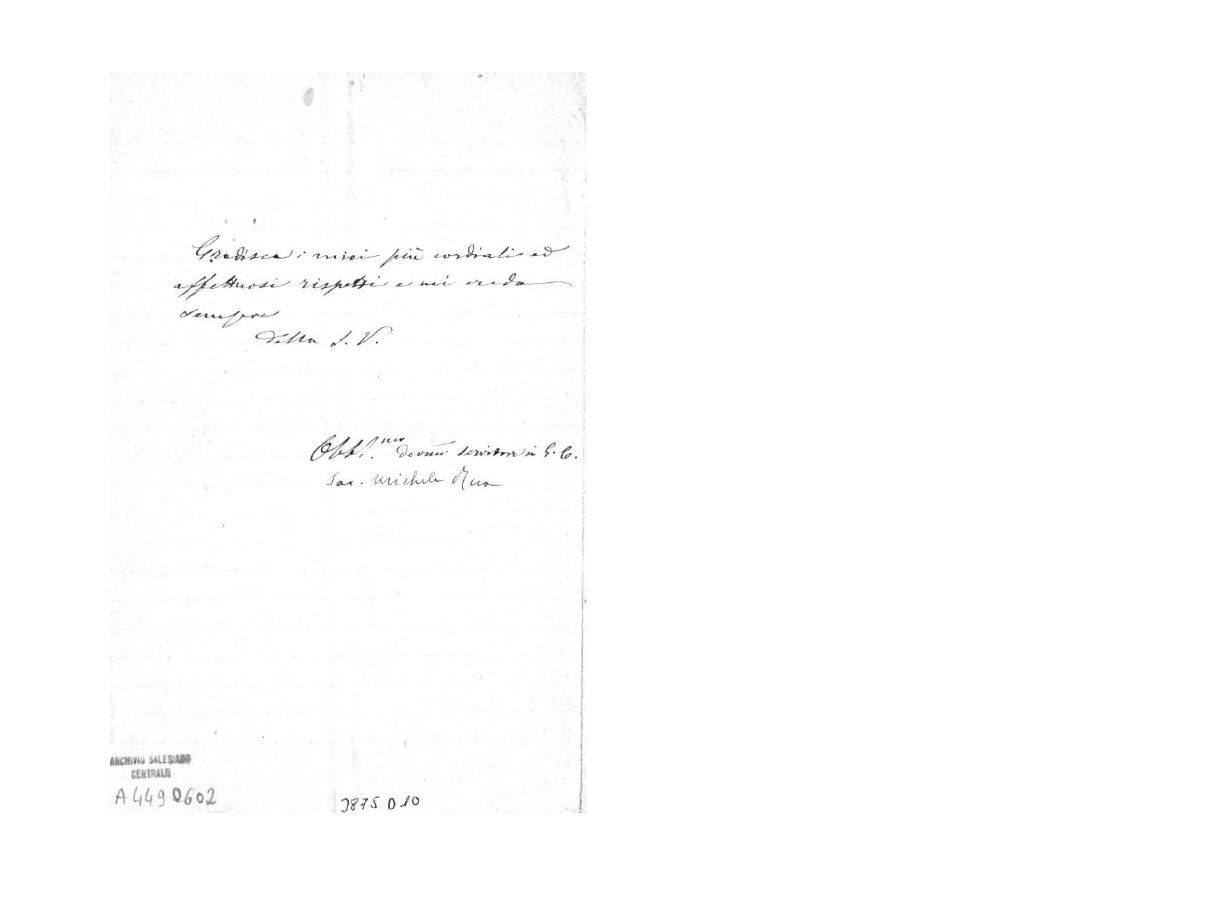 Gradisca i miei più cordiali ed
affettuosi rispetti e mi creda
sempre
Della S. V.
Obbl.mo devmo servitore in G. C.
Sac. Michele Rua
ARCHIVIO SALESIANO
CENTRALE
A 449 0602
3875 D 10